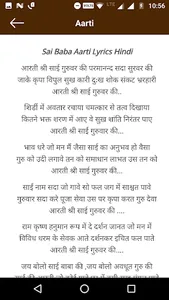 10:56
Aarti
Sai Baba Aarti Lyrics Hindi
आरती श्री साई गुरुवर की परमानन्द सदा सुरवर की
जाके कृपा विपुल सुख कारी दुःख शोक संकट भ्ररहारी
आरती श्री साई गुरुवर की..
शिर्डी में अवतार रचाया चमत्कार से तत्व दिखाया
कितने भक्त शरण में आए वे सुख शांति निरंतर पाए
आरती श्री साई गुरुवर की...
भाव धरे जो मन मैं जैसा साई का अनुभव हो वैसा
गुरु को उदी लगावे तन को समाधान लाभत उस तन को
आरती श्री साईं गुरुवर की....
साईं नाम सदा जो गावे सो फल जग में साश्वत पावे
गुरुवार सदा करे पूजा सेवा उस पर कृपा करत गुरु देवा
आरती श्री साई गुरुवर की....
राम कृष्ण हनुमान रूप में दे दर्शन जानत जो मन में
विविध धरम के सेवक आते दर्शनकर इचित फल पाते
आरती श्री साई गुरुवर की....
जय बोलो साई बाबा की ,जय बोलो अवधूत गुरु की